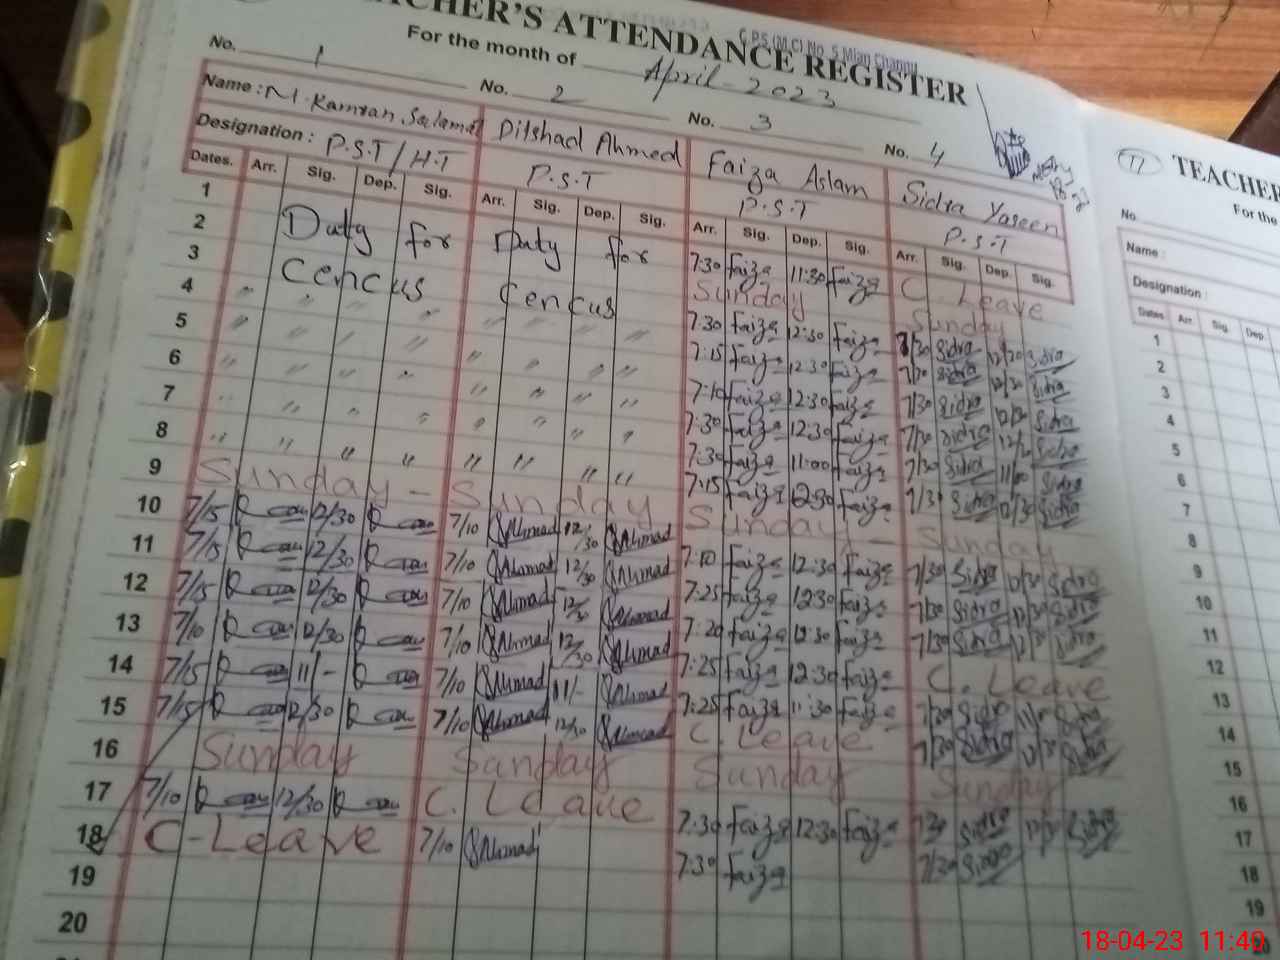 TEACHER'S ATTENDANCE REGISTER
G.P.S (M.C) No. 5 Mian Channu
For the month of April - 2023
No. 1 No. 2 No. 3 No. 4
Name : M. Kamran Salamat Dilshad Ahmed Faiza Aslam Sidra Yaseen
Designation : P.S.T / H.T P.S.T P.S.T P.S.T
Dates. Arr. Sig. Dep. Sig. Arr. Sig. Dep. Sig. Arr. Sig. Dep. Sig. Arr. Sig. Dep. Sig.
1 Duty for Duty for 7:30 Faiza 11:30 Faiza C. Leave
2 Cencus Cencus Sunday Sunday
3 " " " " " " " " 7:30 Faiza 12:30 Faiza 7/30 Sidra 12/30 Sidra
4 " " " " " " " " 7:15 Faiza 12:30 Faiza 7/30 Sidra 12/30 Sidra
5 " " " " " " " " 7:10 Faiza 12:30 Faiza 7/30 Sidra 12/30 Sidra
6 " " " " " " " " 7:30 Faiza 12:30 Faiza 7/30 Sidra Sidra
7 7:30 Faiza 11:00 Faiza 7/30 Sidra 11/00 Sidra
8 7:15 Faiza 12:30 Faiza 7/30 Sidra 12/30 Sidra
9 Sunday - Sunday Sunday - Sunday
10 7/15 12/30 7/10 Ahmad 12/30 Ahmad 7:10 Faiza 12:30 Faiza 7/30 Sidra 12/30 Sidra
11 7/15 12/30 7/10 Ahmad 12/30 Ahmad 7:25 Faiza 12:30 Faiza 7/30 Sidra 12/30 Sidra
12 7/15 12/30 7/10 Ahmad 12/30 Ahmad 7:20 Faiza 12:30 Faiza 7/30 Sidra 12/30 Sidra
13 7/10 12/30 7/10 Ahmad 12/30 Ahmad 7:25 Faiza 12:30 Faiza C. Leave
14 7/15 11/- 7/10 Ahmad 11/- Ahmad 7:25 Faiza 11:30 Faiza 7/30 Sidra Sidra
15 7/15 12/30 7/10 Ahmad 12/30 Ahmad C. Leave 7/30 Sidra 12/30 Sidra
16 Sunday Sunday Sunday Sunday
17 7/10 12/30 C. Leave 7:30 Faiza 12:30 Faiza 7/30 Sidra 12/30 Sidra
18 C-Leave 7/10 Ahmad 7:30 Faiza 7/30 Sidra
19
20
17 TEACHER
For the
No
Name :
Designation :
Dates Arr. Sig. Dep.
1
2
3
4
5
6
7
8
9
10
11
12
13
14
15
16
17
18
19
18-04-23 11:40